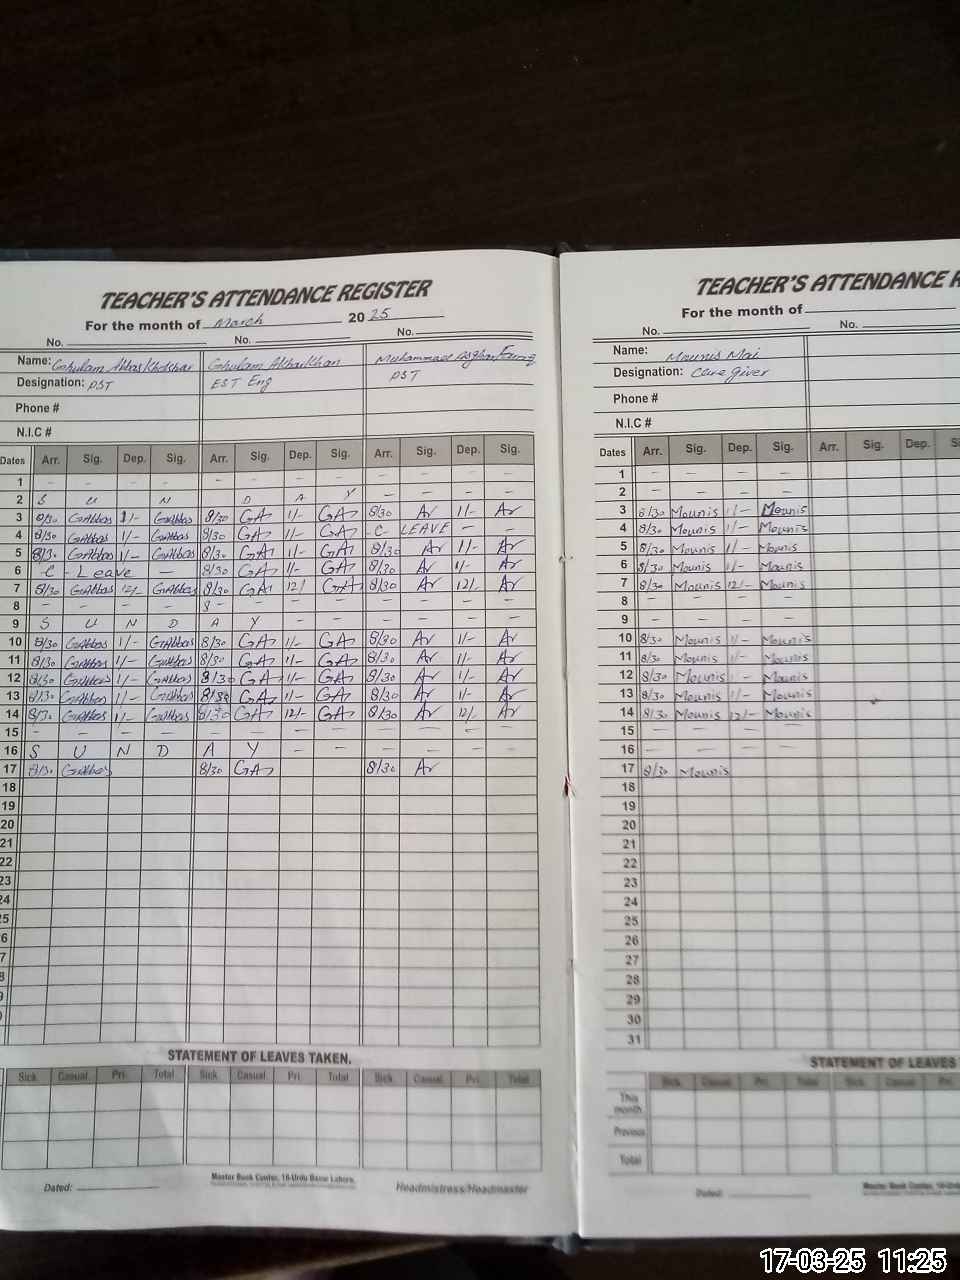 TEACHER'S ATTENDANCE REGISTER
For the month of March 2025
No. No. No.
Name: Ghulam Abbas Khokhar Ghulam Akbar Khan Muhammad Asghar
Designation: PST EST Eng PST
Phone #
N.I.C #
Dates Arr. Sig. Dep. Sig. Arr. Sig. Dep. Sig. Arr. Sig. Dep. Sig.
1 - - - - - - - - - - - -
2 S U N D A Y - - - -
3 8/30 GAbbas 1/- GAbbas 8/30 GA 1/- GA 8/30 Ar 1/- Ar
4 8/30 GAbbas 1/- GAbbas 8/30 GA 1/- GA C- LEAVE - -
5 8/30 GAbbas 1/- GAbbas 8/30 GA 1/- GA 8/30 Ar 1/- Ar
6 C - Leave - 8/30 GA 1/- GA 8/30 Ar 1/- Ar
7 8/30 GAbbas 12/- GAbbas 8/30 GA 12/ GA 8/30 Ar 12/- Ar
8 - - - - 8 - - - - - - -
9 S U N D A Y - - - - - -
10 8/30 GAbbas 1/- GAbbas 8/30 GA 1/- GA 8/30 Ar 1/- Ar
11 8/30 GAbbas 1/- GAbbas 8/30 GA 1/- GA 8/30 Ar 1/- Ar
12 8/30 GAbbas 1/- GAbbas 8/30 GA 1/- GA 8/30 Ar 1/- Ar
13 8/30 GAbbas 1/- GAbbas 8/30 GA 1/- GA 8/30 Ar 1/- Ar
14 8/30 GAbbas 1/- GAbbas 8/30 GA 12/- GA 8/30 Ar 12/ Ar
15 - - - - - - - - - - - -
16 S U N D A Y - - - - - -
17 8/30 GAbbas 8/30 GA 8/30 Ar
18
19
20
21
22
23
24
25
6
7
8
9
STATEMENT OF LEAVES TAKEN.
Sick Casual Pri. Total Sick. Casual. Pri. Total Sick Casual. Pri. Total
Master Book Center, 16-Urdu Bazar Lahore.
Dated: Headmistress/Headmaster
TEACHER'S ATTENDANCE R
For the month of
No. No.
Name: Mounis Mai
Designation: Care giver
Phone #
N.I.C #
Dates Arr. Sig. Dep. Sig. Arr. Sig. Dep. Si
1 - - - -
2 - - - -
3 8/30 Mounis 1/- Mounis
4 8/30 Mounis 1/- Mounis
5 8/30 Mounis 1/- Mounis
6 8/30 Mounis 1/- Mounis
7 8/30 Mounis 12/- Mounis
8 - - - -
9 - - - -
10 8/30 Mounis 1/- Mounis
11 8/30 Mounis 1/- Mounis
12 8/30 Mounis 1/- Mounis
13 8/30 Mounis 1/- Mounis
14 8/30 Mounis 12/- Mounis
15 - - - -
16 - - - -
17 8/30 Mounis
18
19
20
21
22
23
24
25
26
27
28
29
30
31
STATEMENT OF LEAVES
Sick Casual Pri. Total Sick Casual Pri.
This month
Previous
Total
Master Book Center, 16-Ur
Dated:
17-03-25 11:25